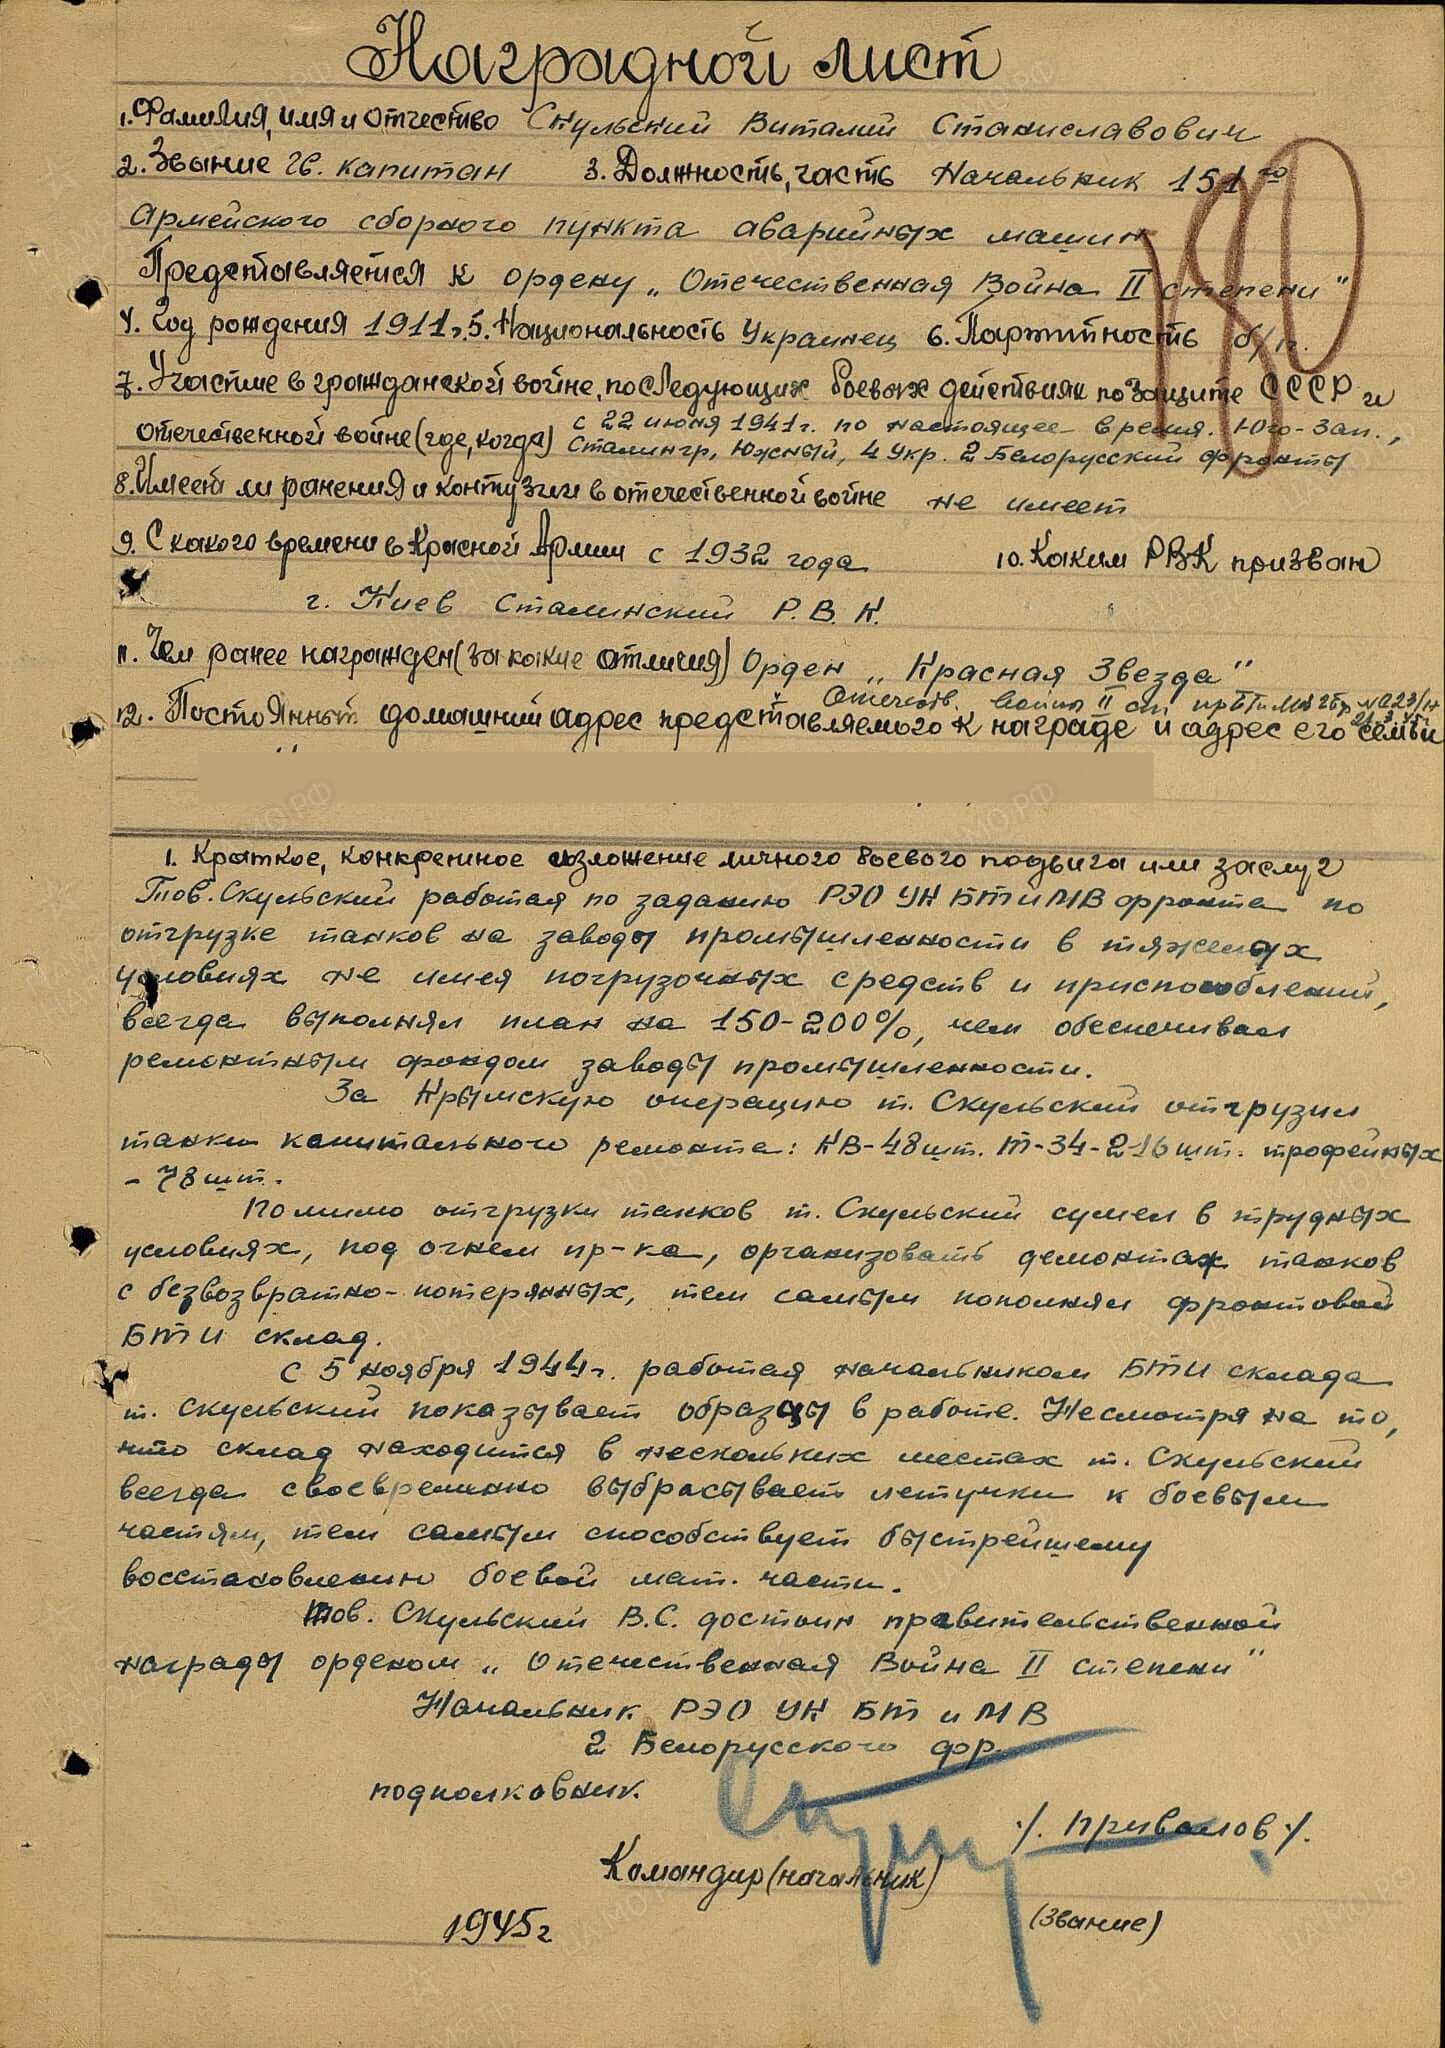 Наградной лист
1. Фамилия, имя и отчество Скульский Виталий Станиславович
2. Звание Гв. капитан 3. Должность, часть Начальник 151го
Армейского сборного пункта аварийных машин
Представляется к ордену „Отечественная Война II степени"
4. Год рождения 1911г. 5. Национальность Украинец 6. Партийность б/п.
7. Участие в гражданской войне, последующих боевых действиях по защите СССР и
отечественной войне (где, когда) с 22 июня 1941г. по настоящее время. Юго-Зап.,
Сталингр, Южный, 4 Укр. 2 Белорусский фронты
8. Имеет ли ранения и контузии в отечественной войне не имеет
9. С какого времени в Красной Армии с 1932 года 10. Каким РВК призван
г. Киев Сталинский Р.В.К.
11. Чем ранее награжден (за какие отличия) Орден „Красная Звезда"
Отечеств. войны II ст
12. Постоянный домашний адрес представляемого к награде и адрес его семьи
1. Краткое, конкретное изложение личного боевого подвига или заслуг
Тов. Скульский работая по заданию РЭО УК БТ и МВ фронта по
отгрузке танков на заводы промышленности в тяжелых
условиях не имея погрузочных средств и приспособлений,
всегда выполнял план на 150-200%, чем обеспечивал
ремонтным фондом заводы промышленности.
За Крымскую операцию т. Скульский отгрузил
танки капитального ремонта: КВ-48шт. Т-34-216шт. трофейных
- 78шт.
Помимо отгрузки танков т. Скульский сумел в трудных
условиях, под огнем пр-ка, организовать демонтаж танков
с безвозвратно-потерянных, тем самым пополнял фронтовой
БТИ склад.
С 5 ноября 1944г. работая начальником БТИ склада
т. Скульский показывает образцы в работе. Несмотря на то,
что склад находится в нескольких местах т. Скульский
всегда своевременно выбрасывает летучки к боевым
частям, тем самым способствует быстрейшему
восстановлению боевой мат. части.
Тов. Скульский В.С. достоин правительственной
награды орденом „Отечественная Война II степени"
Начальник РЭО УК БТ и МВ
2 Белорусского фр.
подполковник.
/. Привалов ./.
Командир (начальник)
(Звание)
1945г